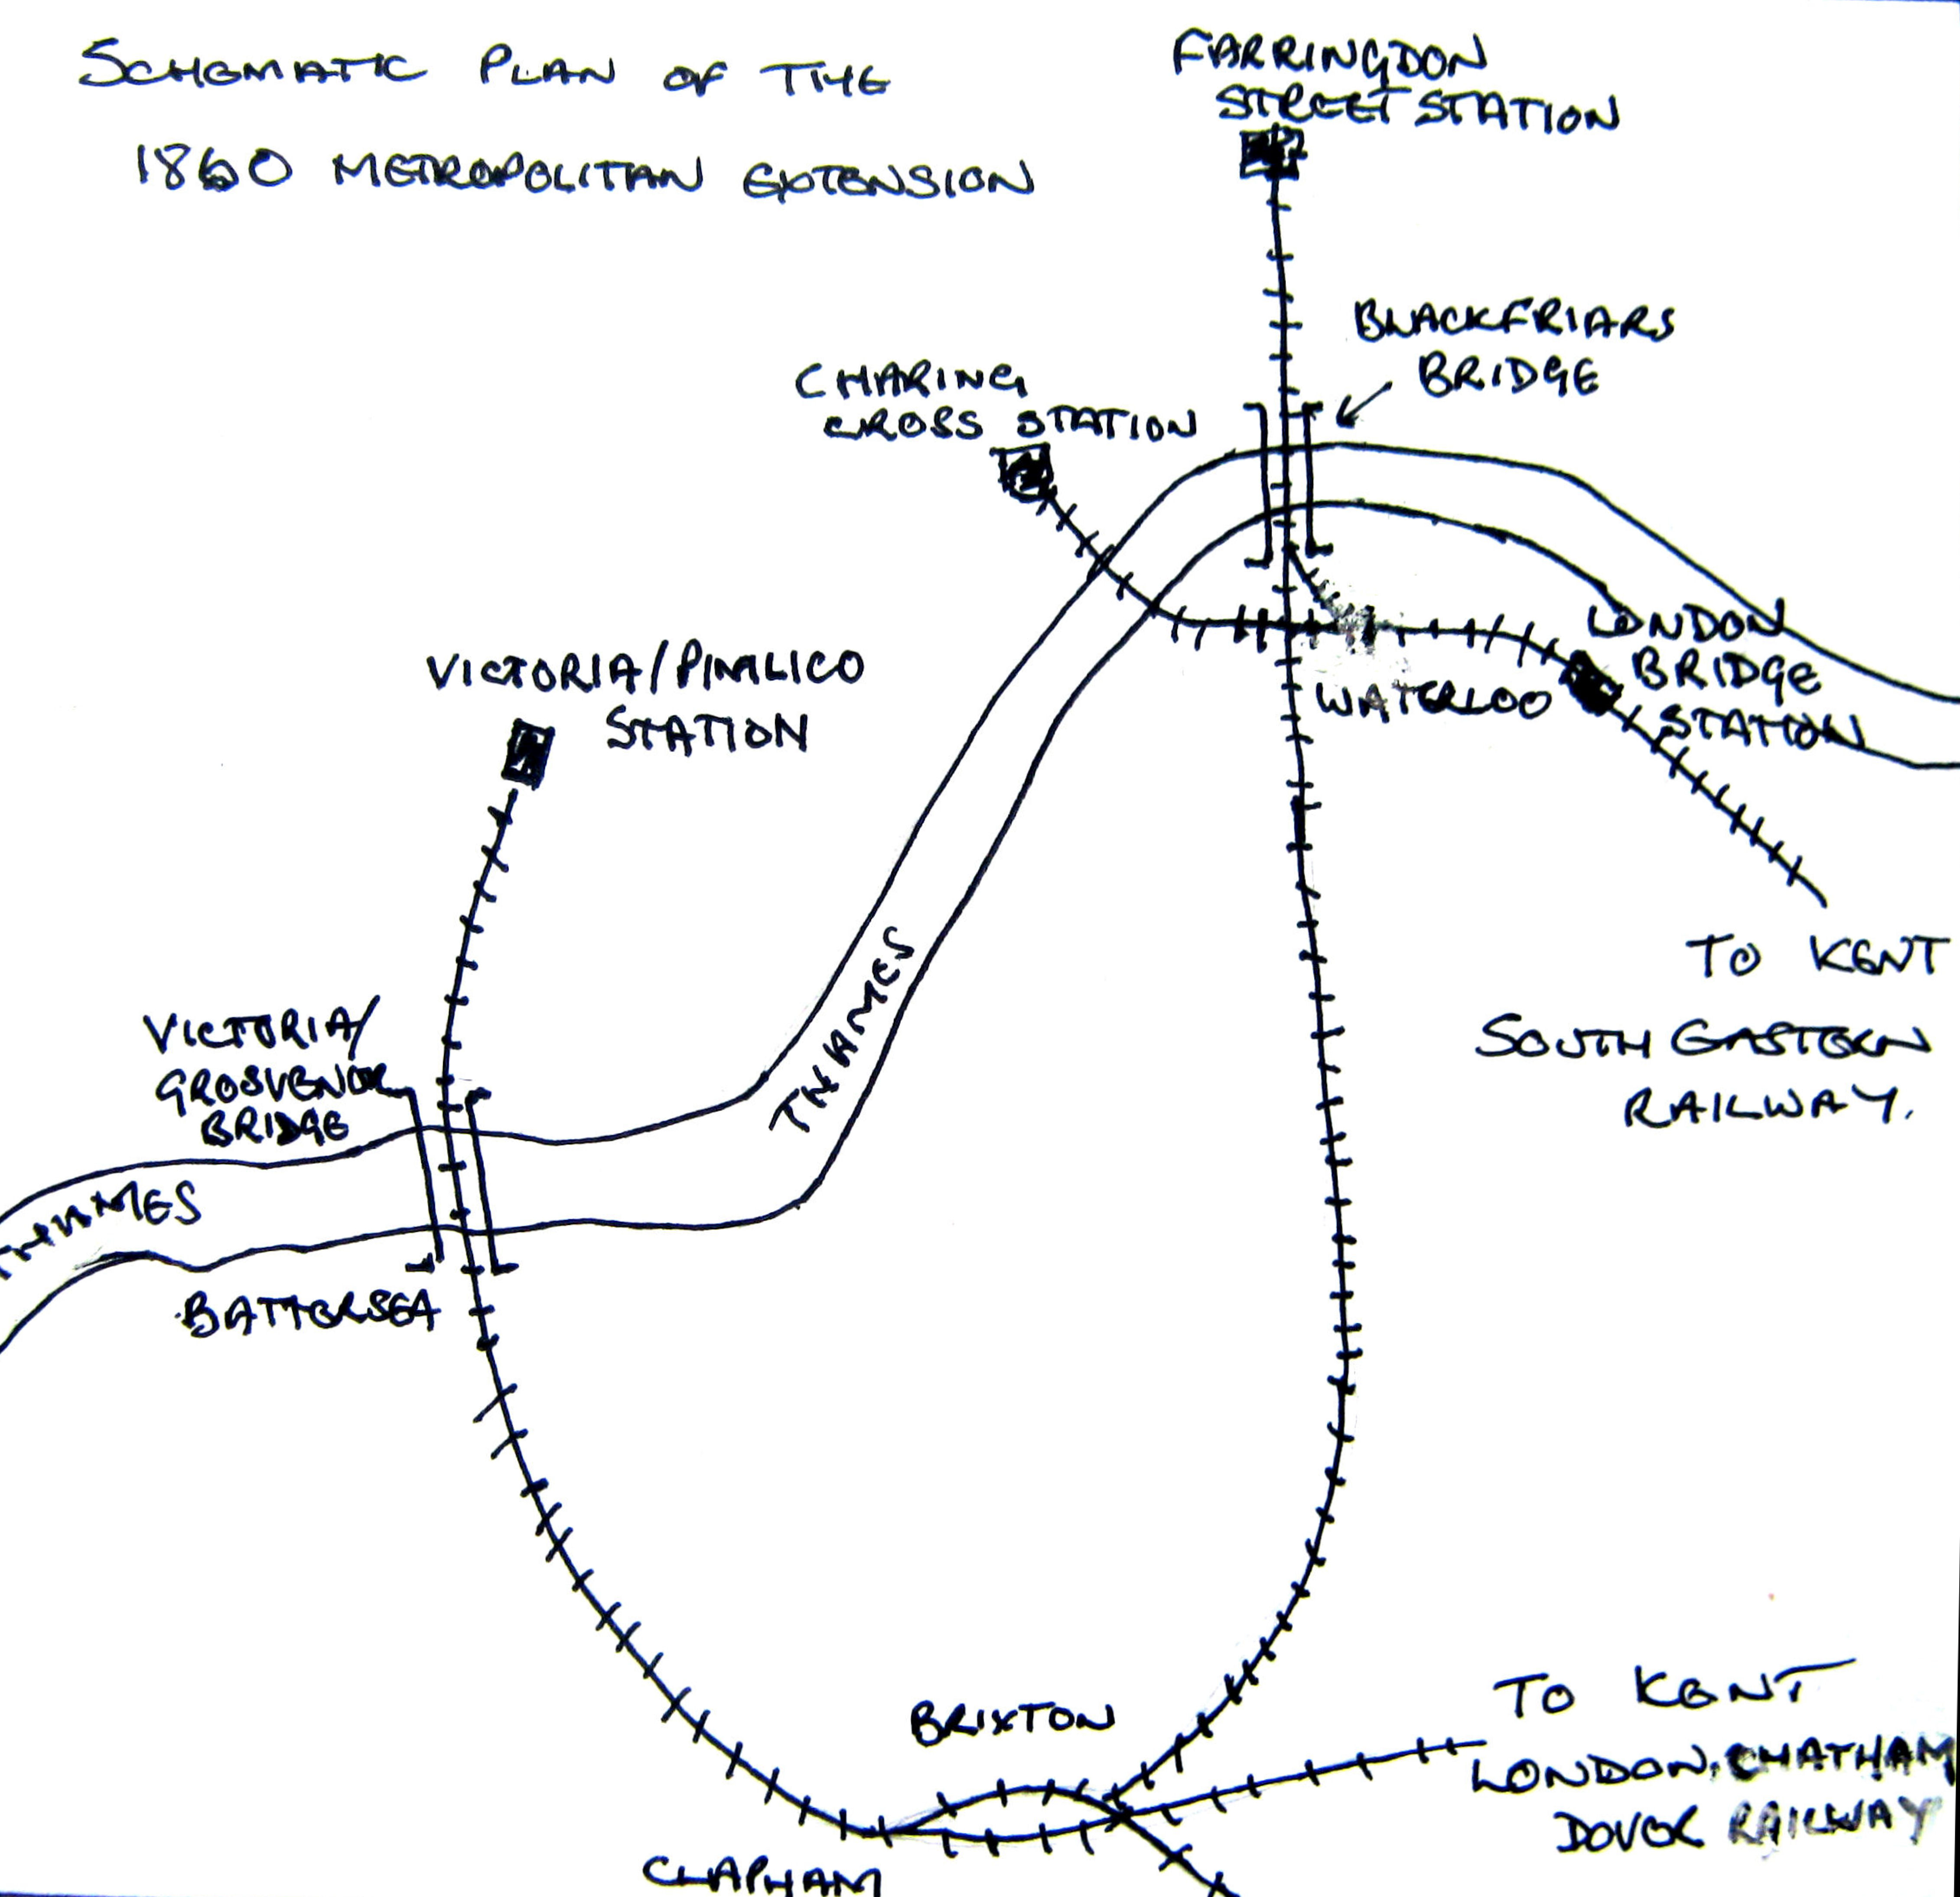 SCHEMATIC PLAN OF THE
1860 METROPOLITAN EXTENSION
FARRINGDON
STREET STATION
BLACKFRIARS
BRIDGE
CHARING
CROSS STATION
LONDON
BRIDGE
STATION
WATERLOO
VICTORIA/PIMLICO
STATION
THAMES
TO KENT
SOUTH EASTERN
RAILWAY.
VICTORIA/
GROSVENOR
BRIDGE
THAMES
BATTERSEA
BRIXTON
TO KENT
LONDON, CHATHAM
DOVER RAILWAY
CLAPHAM